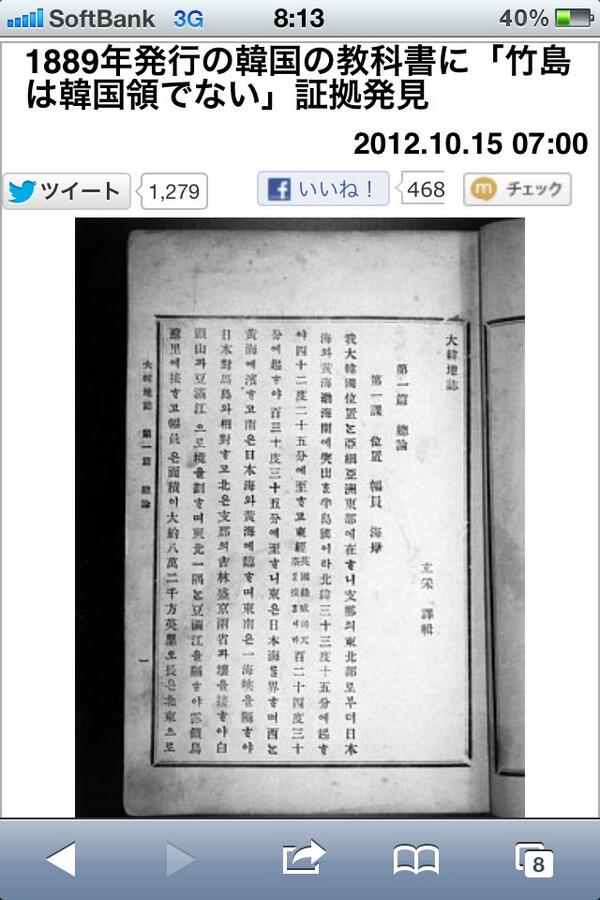 SoftBank 3G 8:13 40%
1889年発行の韓国の教科書に「竹島
は韓国領でない」証拠発見
2012.10.15 07:00
ツイート 1,279 いいね! 468 チェック
大韓地誌
第一篇 總論
第一課 位置 幅員 海岸
玄采 譯輯
我大韓國位置는亞細亞洲東部에在ᄒᆞ니支那의東北部로부터日本
海와黃海渤海間에突出ᄒᆞᆫ半島國이라北緯三十三度十五分에起ᄒᆞ
야四十二度二十五分에至ᄒᆞ고東經百二十四度三十
分에起ᄒᆞ야百三十度三十五分에至ᄒᆞ니東은日本海를界ᄒᆞ며西는
黃海에濱ᄒᆞ고南은日本海와黃海에臨ᄒᆞ며東南은一海峽을隔ᄒᆞ야
日本對馬島와相對ᄒᆞ고北은支那의吉林盛京兩省과壤을接ᄒᆞ야白
頭山과豆滿江으로境을劃ᄒᆞ며東北一隅는豆滿江을隔ᄒᆞ야露領烏
蘇里에接ᄒᆞ고幅員은面積이大約八萬二千方英里오長은北東으로
大韓地誌 第一篇 總論
一
8